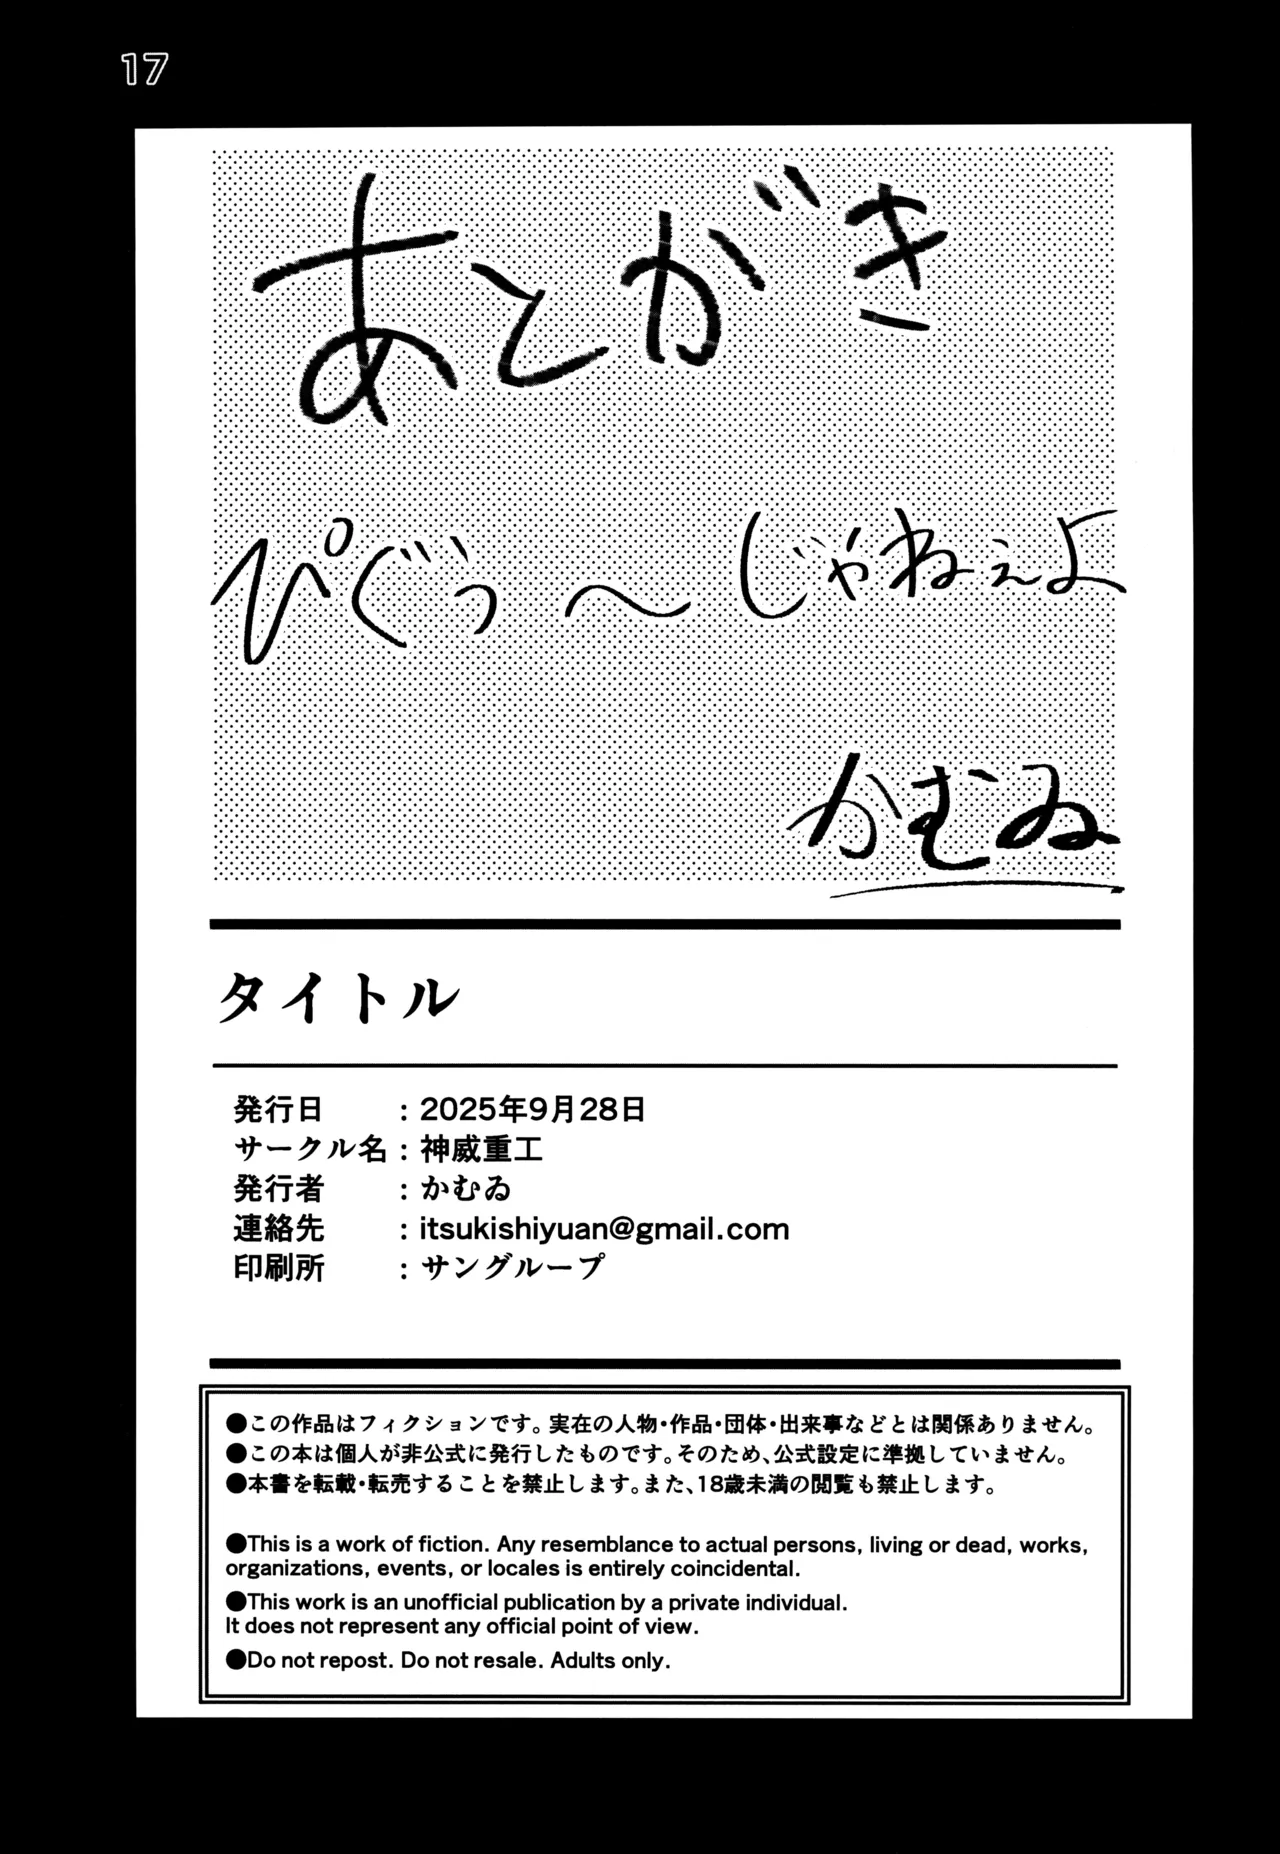 17
あとがき
ぴぐぅ〜じゃねぇよ
かむゐ
タイトル
発行日 : 2025年9月28日
サークル名 : 神威重工
発行者 : かむゐ
連絡先 : itsukishiyuan@gmail.com
印刷所 : サングループ
●この作品はフィクションです。実在の人物・作品・団体・出来事などとは関係ありません。
●この本は個人が非公式に発行したものです。そのため、公式設定に準拠していません。
●本書を転載・転売することを禁止します。また、18歳未満の閲覧も禁止します。
●This is a work of fiction. Any resemblance to actual persons, living or dead, works,
organizations, events, or locales is entirely coincidental.
●This work is an unofficial publication by a private individual.
It does not represent any official point of view.
●Do not repost. Do not resale. Adults only.